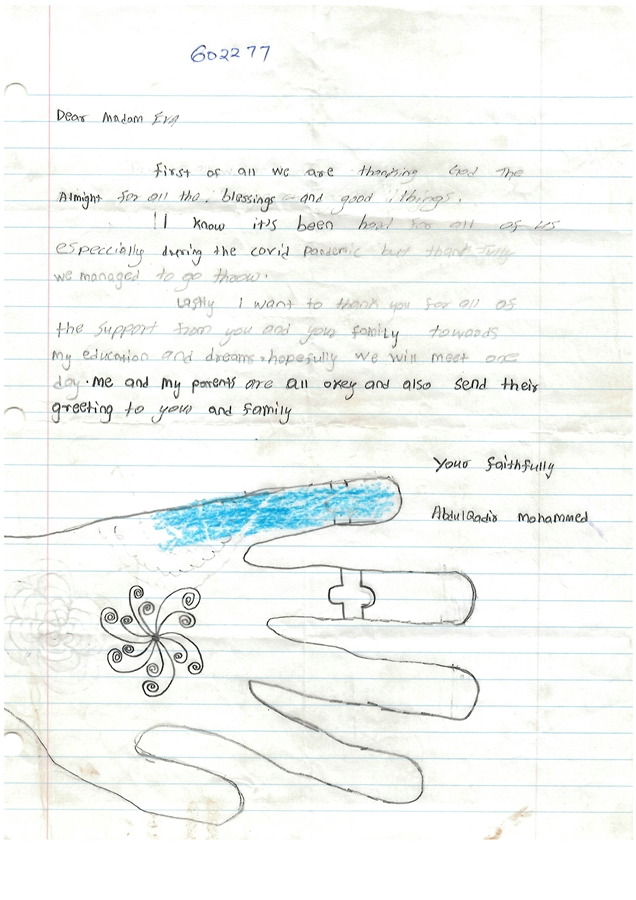 602277
Dear Madam EVA
First of all we are thanking God the
Almight for all the. blessings and good ithings.
I know it's been hard for all of us
especcially durring the covid pandemic but thankfully
we managed to go throw.
Lastly I want to thank you for all of
the support from you and your family towards
my education and dreams. hopefully we will meet one
day. Me and my parents are all okey and also send their
greeting to your and family
Your faithfully
AbdulQadir Mohammed